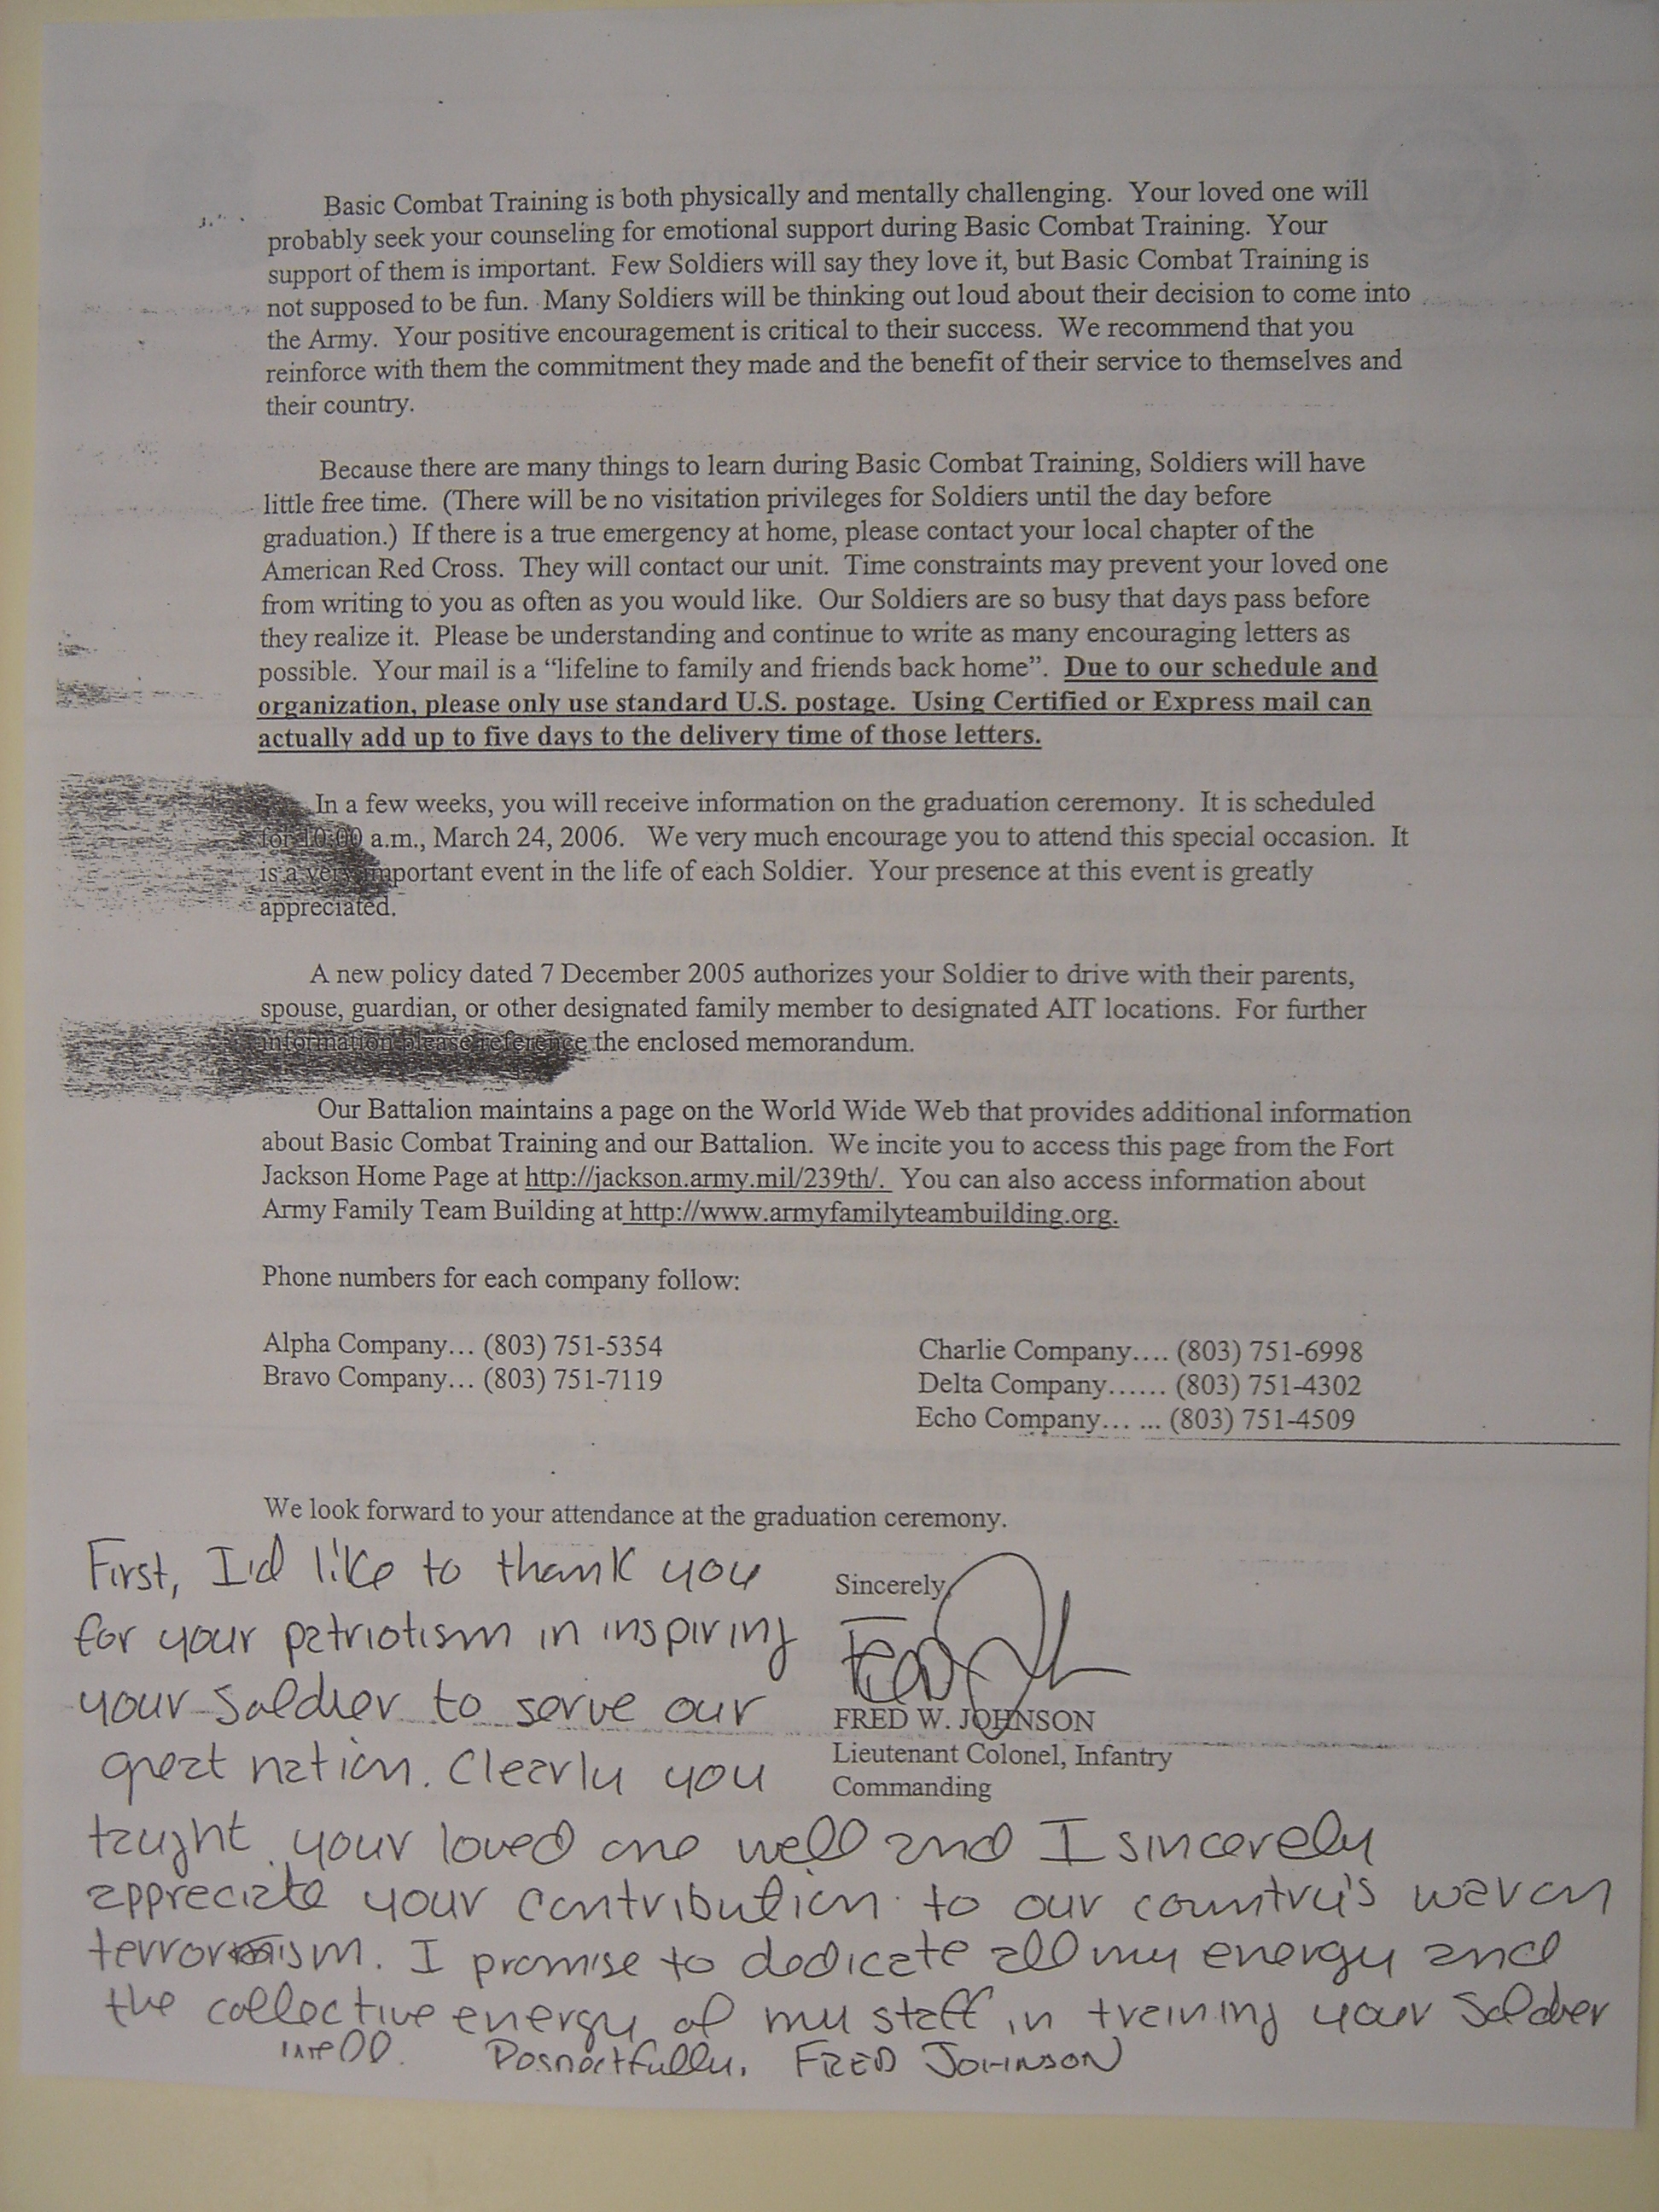 Basic Combat Training is both physically and mentally challenging. Your loved one will
probably seek your counseling for emotional support during Basic Combat Training. Your
support of them is important. Few Soldiers will say they love it, but Basic Combat Training is
not supposed to be fun. Many Soldiers will be thinking out loud about their decision to come into
the Army. Your positive encouragement is critical to their success. We recommend that you
reinforce with them the commitment they made and the benefit of their service to themselves and
their country.
Because there are many things to learn during Basic Combat Training, Soldiers will have
little free time. (There will be no visitation privileges for Soldiers until the day before
graduation.) If there is a true emergency at home, please contact your local chapter of the
American Red Cross. They will contact our unit. Time constraints may prevent your loved one
from writing to you as often as you would like. Our Soldiers are so busy that days pass before
they realize it. Please be understanding and continue to write as many encouraging letters as
possible. Your mail is a “lifeline to family and friends back home”. Due to our schedule and
organization, please only use standard U.S. postage. Using Certified or Express mail can
actually add up to five days to the delivery time of those letters.
In a few weeks, you will receive information on the graduation ceremony. It is scheduled
for 10:00 a.m., March 24, 2006. We very much encourage you to attend this special occasion. It
is a very important event in the life of each Soldier. Your presence at this event is greatly
appreciated.
A new policy dated 7 December 2005 authorizes your Soldier to drive with their parents,
spouse, guardian, or other designated family member to designated AIT locations. For further
information please reference the enclosed memorandum.
Our Battalion maintains a page on the World Wide Web that provides additional information
about Basic Combat Training and our Battalion. We incite you to access this page from the Fort
Jackson Home Page at http://jackson.army.mil/239th/. You can also access information about
Army Family Team Building at http://www.armyfamilyteambuilding.org.
Phone numbers for each company follow:
Alpha Company... (803) 751-5354
Bravo Company... (803) 751-7119
Charlie Company.... (803) 751-6998
Delta Company...... (803) 751-4302
Echo Company... ... (803) 751-4509
We look forward to your attendance at the graduation ceremony.
Sincerely,
Fred Johnson
FRED W. JOHNSON
Lieutenant Colonel, Infantry
Commanding
First, I'd like to thank you
for your patriotism in inspiring
your soldier to serve our
great nation. Clearly you
taught your loved one well and I sincerely
appreciate your contribution to our country's war on
terrorism. I promise to dedicate all my energy and
the collective energy of my staff in training your soldier
well. Respectfully, FRED JOHNSON